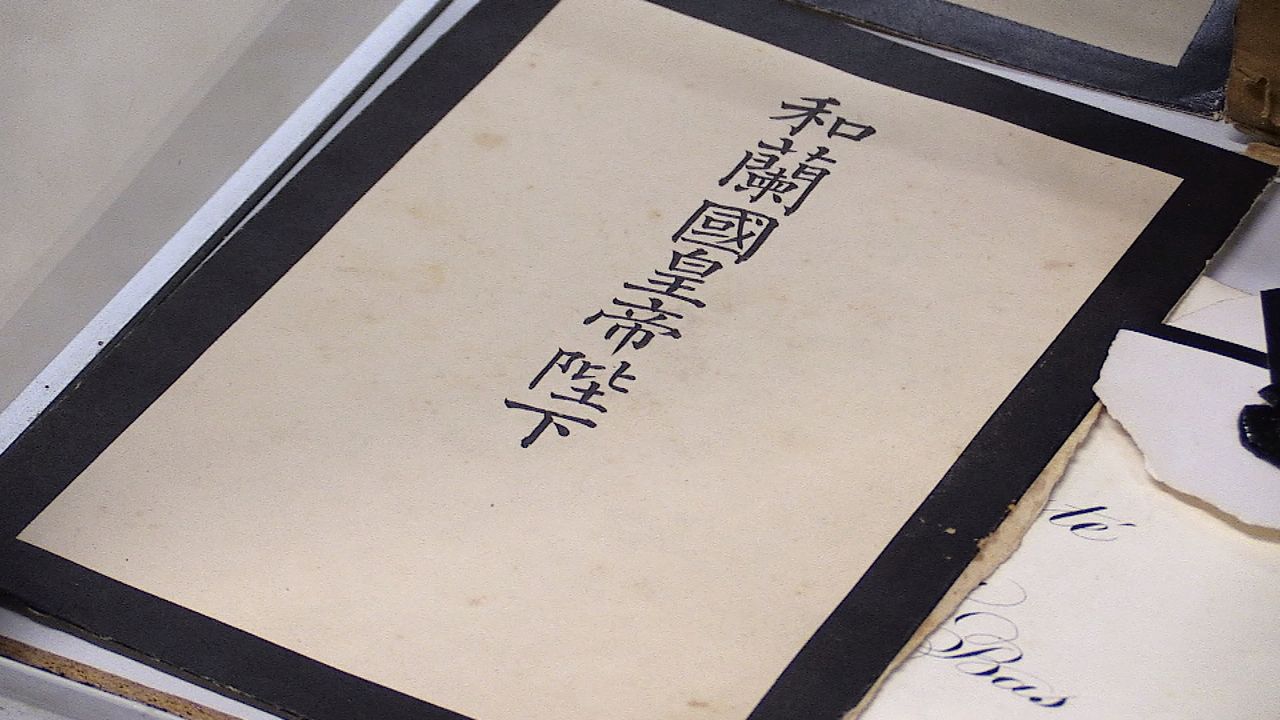 和蘭國皇帝陛下
té
Bas